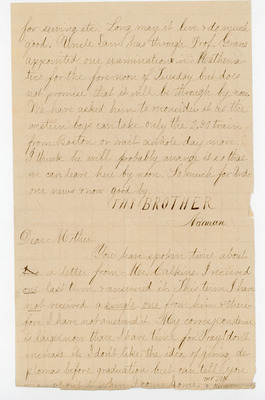 for serving etc. Long may it live & do much
good. Uncle Sam has through Prof. Evans
appointed one examination in Mathema-
tics for the forenoon of Tuesday but does
not promise that it will be through by noon.
We have asked him to reconsider it as the
western boys can take only the 2.30 train
from Boston or wait a whole day more.
I think he will probably arrange it so that
we can leave here by noon. So much for
one news & now good by.
THY BROTHER
Norman
Dear Mother
You have spoken time about
a letter from Mr. Calkins. I received
one last term & answered it. This term I have
not received a single one from him & there-
fore I have not answered it. My correspondence
is larger now than I have time for I say! don't
increase it. I don't like the idea of giving di-
plomas before graduation but can tell you
about it when I come home.